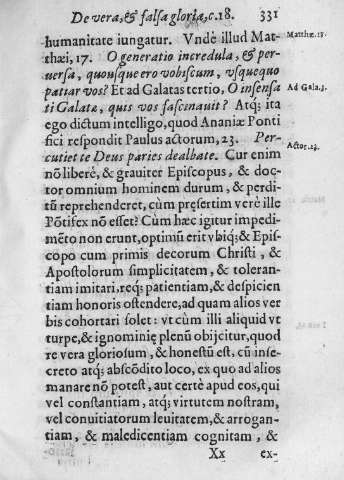 De vera, & falsa gloria, c.18. 331
humanitate iungatur. Vndè illud Mat- Matthæ. 17.
thæi, 17. O generatio incredula, & per-
uersa, quousque ero vobiscum, vsquequo
patiar vos? Et ad Galatas tertio, O insensa Ad Gala.3.
ti Galatæ, quis vos fascinauit? Atq; ita
ego dictum intelligo, quod Ananiæ Ponti
fici respondit Paulus actorum, 23. Per- Actor.23.
cutiet te Deus paries dealbate. Cur enim
nō liberè, & grauiter Episcopus, & doc-
tor omnium hominem durum, & perdi-
tū reprehenderet, cùm pręsertim verè ille
Pōtifex nō esset? Cùm hæc igitur impedi-
mēto non erunt, optimū erit vbiq; & Epis-
copo cum primis decorum Christi, &
Apostolorum simplicitatem, & toleran-
tiam imitari, req; patientiam, & despicien
tiam honoris ostendere, ad quam alios ver
bis cohortari solet: vt cùm illi aliquid vt
turpe, & ignominię plenū obijcitur, quod
re vera gloriosum, & honestū est, cū inse-
creto atq; abscōdito loco, ex quo ad alios
manare nō potest, aut certè apud eos, qui
vel constantiam, atq; virtutem nostram,
vel conuitiatorum leuitatem, & arrogan-
tiam, & maledicentiam cognitam, &
Xx ex-